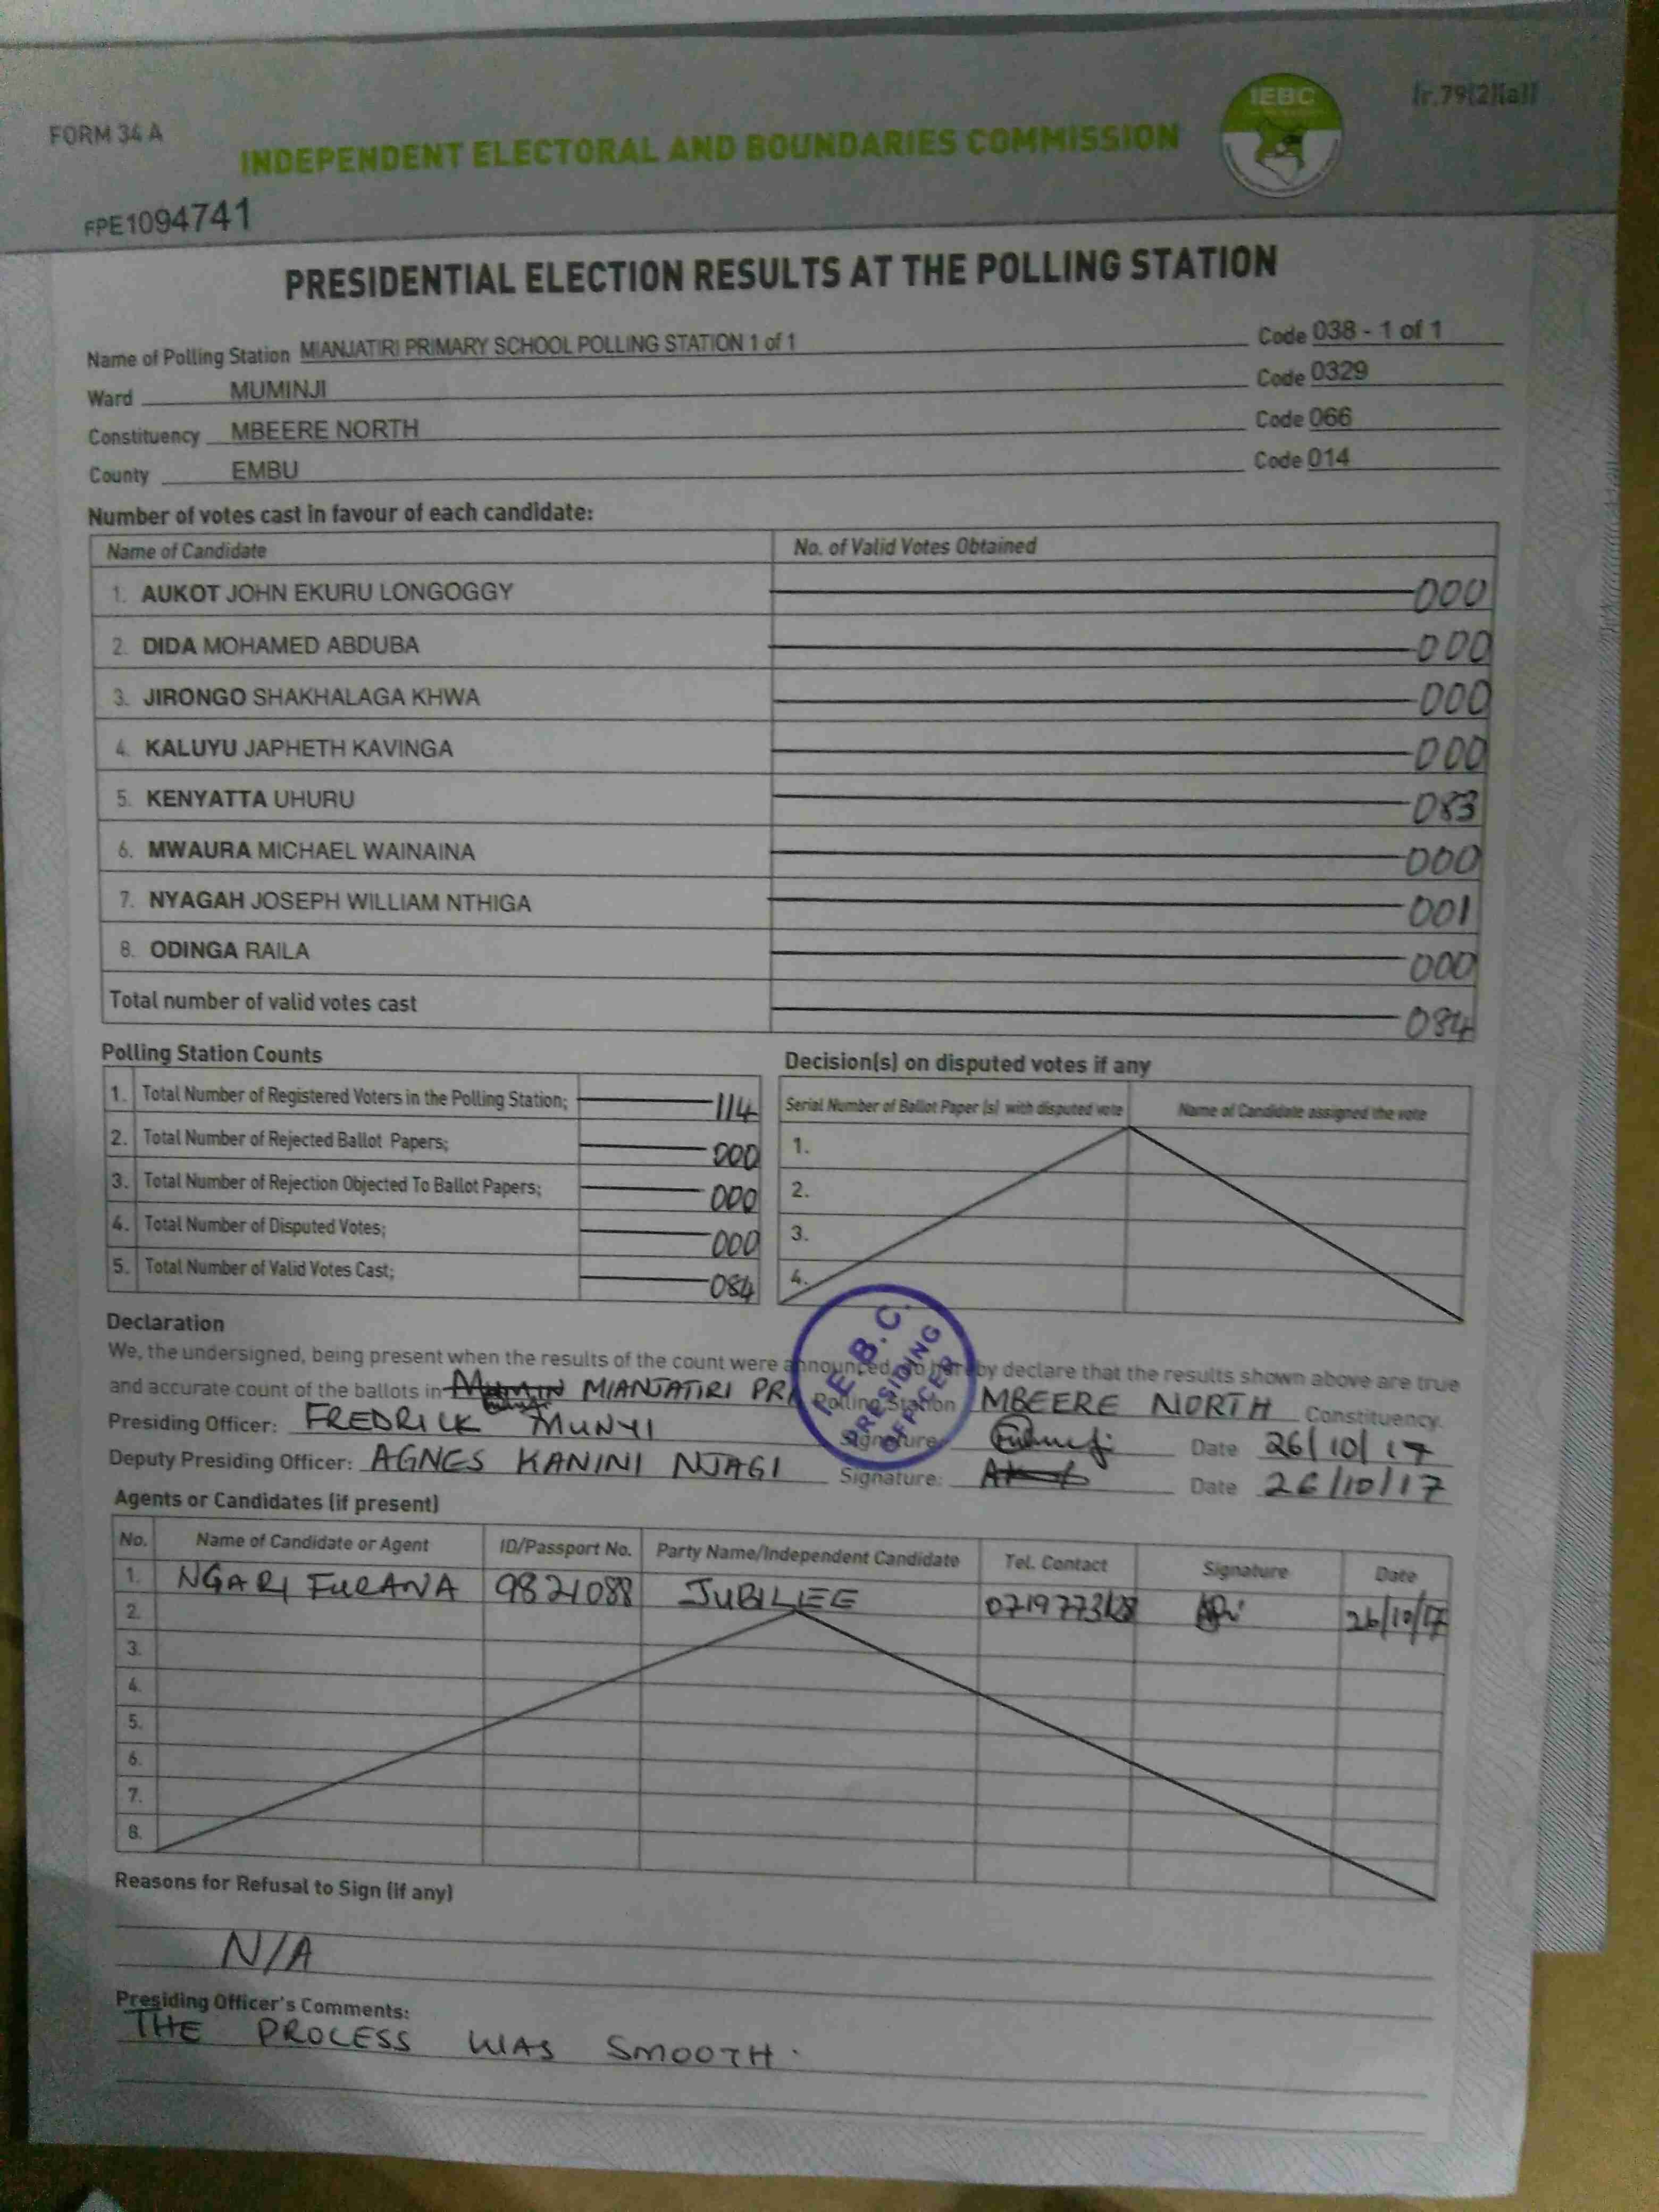 FORM 34 A
IEBC
[r.79(2)(a)]
INDEPENDENT ELECTORAL AND BOUNDARIES COMMISSION
FPE1094741
PRESIDENTIAL ELECTION RESULTS AT THE POLLING STATION
Name of Polling Station MIANJATIRI PRIMARY SCHOOL POLLING STATION 1 of 1 Code 038 - 1 of 1
Ward MUMINJI Code 0329
Constituency MBEERE NORTH Code 066
County EMBU Code 014
Number of votes cast in favour of each candidate:
Name of Candidate No. of Valid Votes Obtained
1. AUKOT JOHN EKURU LONGOGGY 000
2. DIDA MOHAMED ABDUBA 000
3. JIRONGO SHAKHALAGA KHWA 000
4. KALUYU JAPHETH KAVINGA 000
5. KENYATTA UHURU 083
6. MWAURA MICHAEL WAINAINA 000
7. NYAGAH JOSEPH WILLIAM NTHIGA 001
8. ODINGA RAILA 000
Total number of valid votes cast 084
Polling Station Counts
1. Total Number of Registered Voters in the Polling Station; 114
2. Total Number of Rejected Ballot Papers; 000
3. Total Number of Rejection Objected To Ballot Papers; 000
4. Total Number of Disputed Votes; 000
5. Total Number of Valid Votes Cast; 084
Decision(s) on disputed votes if any
Serial Number of Ballot Paper (s) with disputed vote Name of Candidate assigned the vote
1.
2.
3.
4.
I.E.B.C.
PRESIDING
OFFICER
Declaration
We, the undersigned, being present when the results of the count were announced, do hereby declare that the results shown above are true
and accurate count of the ballots in MIANJATIRI PRI Polling Station MBEERE NORTH Constituency.
Presiding Officer: FREDRICK MUNYI Signature: Date 26/10/17
Deputy Presiding Officer: AGNES KANINI NJAGI Signature: Date 26/10/17
Agents or Candidates (if present)
No. Name of Candidate or Agent ID/Passport No. Party Name/Independent Candidate Tel. Contact Signature Date
1. NGARI 9821088 JUBILEE 26/10/17
2.
3.
4.
5.
6.
7.
8.
Reasons for Refusal to Sign (if any)
N/A
Presiding Officer's Comments:
THE PROCESS WAS SMOOTH.